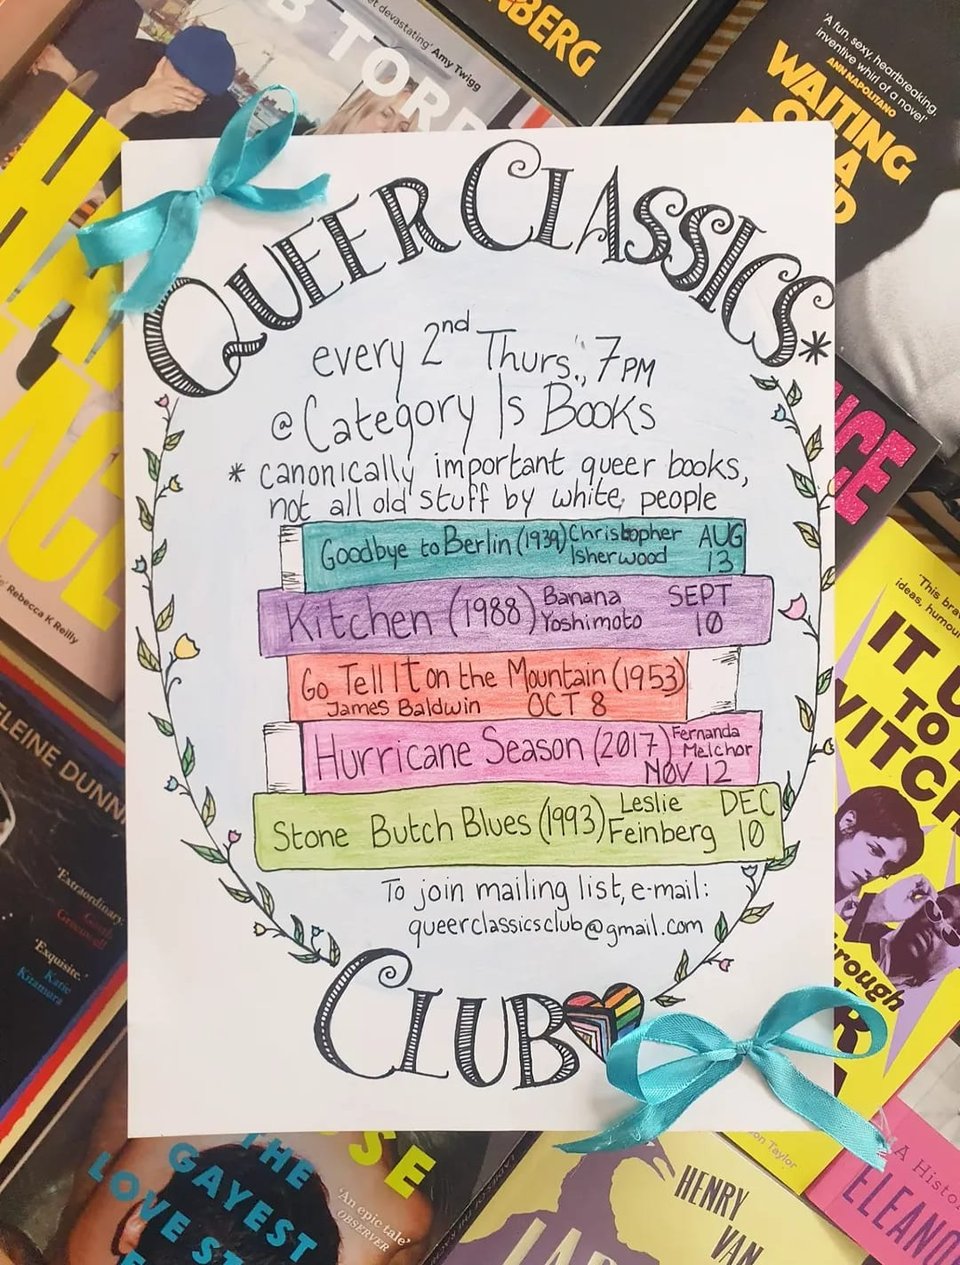 B TORR
devastating' Amy Twigg
NBERG
'A fun, sexy, heartbreaking,
inventive whirl of a novel'
ANN NAPOLITANO
WAITING
QUEER CLASSICS*
every 2nd Thurs., 7PM
@ Category Is Books
* canonically important queer books,
not all old stuff by white people
Goodbye to Berlin (1939) Christopher Isherwood AUG 13
Kitchen (1988) Banana Yoshimoto SEPT 10
Go Tell It on the Mountain (1953)
James Baldwin OCT 8
Hurricane Season (2017) Fernanda Melchor
NOV 12
Stone Butch Blues (1993) Leslie Feinberg DEC 10
To join mailing list, e-mail:
queerclassicsclub@gmail.com
CLUB
Rebecca K Reilly
ELEINE DUNN
'Extraordinary.'
'Exquisite.'
Katie
Kitamura
'This brav
ideas, humou
IT
TO
VITCH
rough
on Taylor
A Histo
ELEANO
HENRY
VAN
THE
GAYEST
LOVE ST
'An epic tale'
OBSERVER